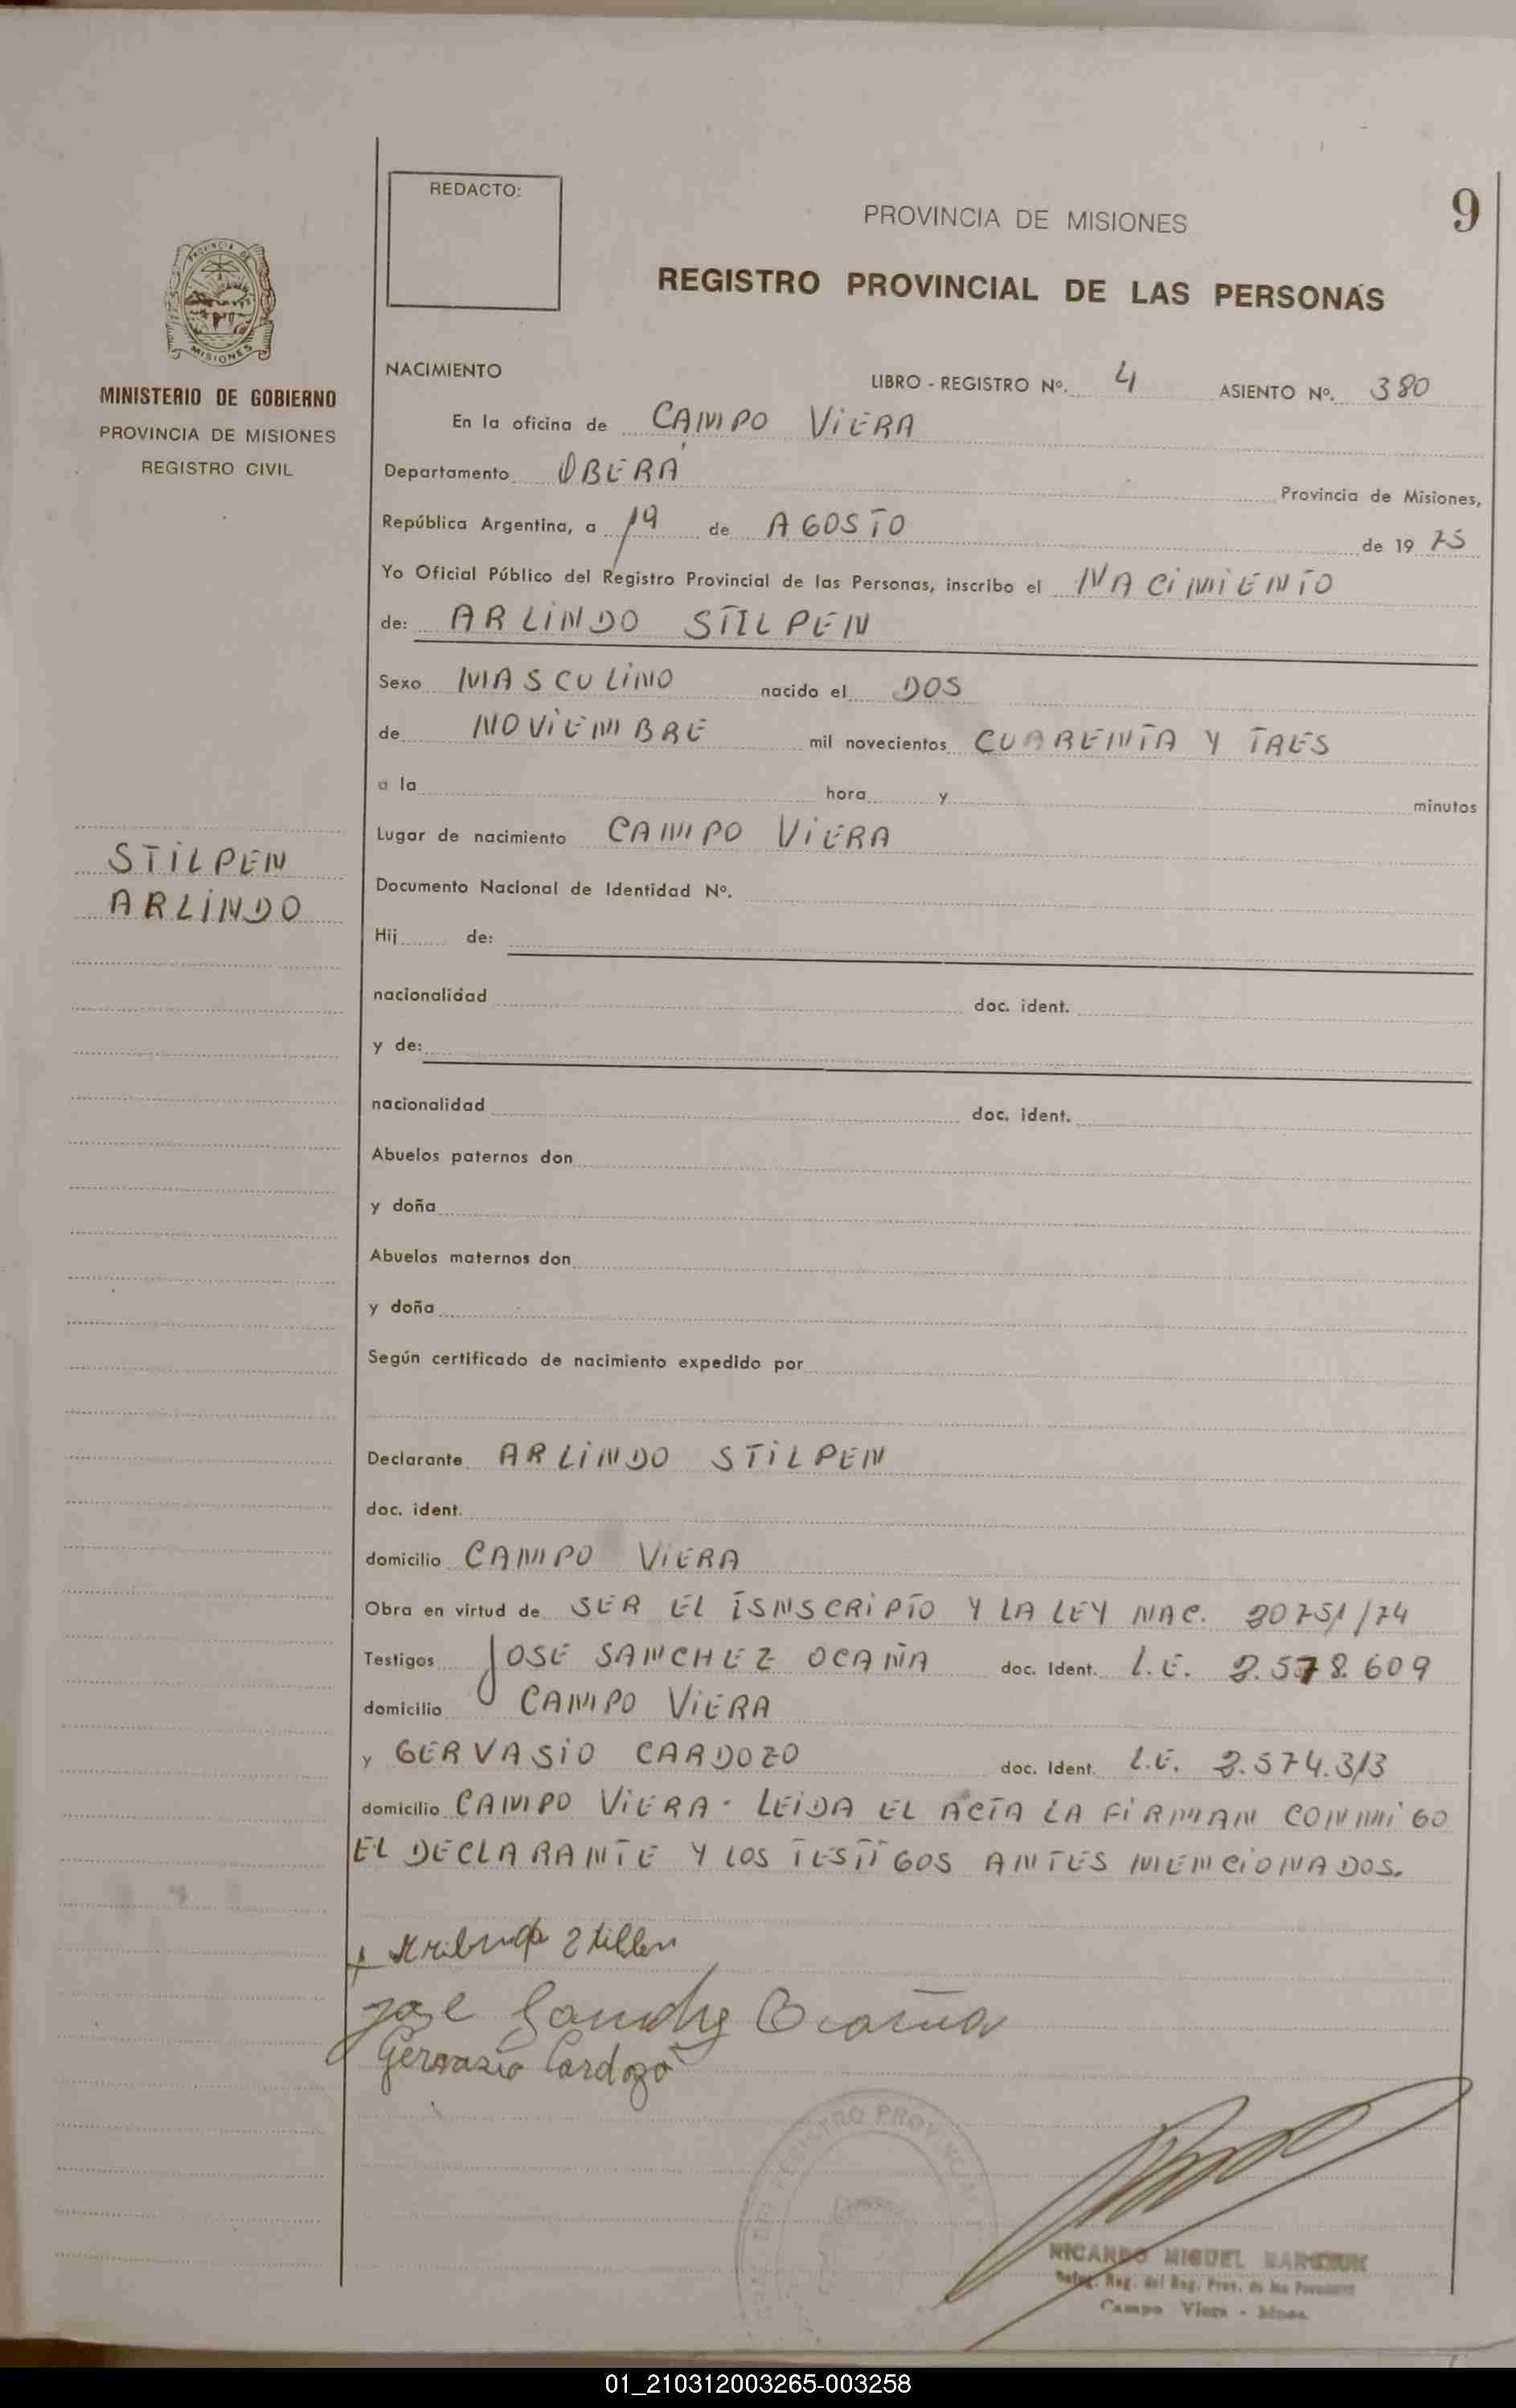 REDACTO:
PROVINCIA DE MISIONES
9
REGISTRO PROVINCIAL DE LAS PERSONAS
PROVINCIA DE
MISIONES
MINISTERIO DE GOBIERNO
PROVINCIA DE MISIONES
REGISTRO CIVIL
NACIMIENTO
LIBRO - REGISTRO Nº. 4 ASIENTO Nº. 380
En la oficina de CAMPO VIERA
Departamento OBERÁ Provincia de Misiones,
República Argentina, a 19 de AGOSTO de 19 75
Yo Oficial Público del Registro Provincial de las Personas, inscribo el NACIMIENTO
de: ARLINDO STILPEN
Sexo MASCULINO nacido el DOS
de NOVIEMBRE mil novecientos CUARENTA Y TRES
a la hora y minutos
Lugar de nacimiento CAMPO VIERA
STILPEN
ARLINDO
Documento Nacional de Identidad Nº.
Hij de:
nacionalidad doc. ident.
y de:
nacionalidad doc. ident.
Abuelos paternos don
y doña
Abuelos maternos don
y doña
Según certificado de nacimiento expedido por
Declarante ARLINDO STILPEN
doc. ident.
domicilio CAMPO VIERA
Obra en virtud de SER EL ISNSCRIPTO Y LA LEY NAC. 20751/74
Testigos JOSE SANCHEZ OCAÑA doc. Ident. L.E. 2.578.609
domicilio CAMPO VIERA
y GERVASIO CARDOZO doc. Ident. L.E. 2.574.313
domicilio CAMPO VIERA - LEIDA EL ACTA LA FIRMAN CONMIGO
EL DECLARANTE Y LOS TESTIGOS ANTES MENCIONADOS.
Jose Sanchez Ocaña
Gervasio Cardozo
DEL REGISTRO PROVINCIAL
RICARDO MIGUEL
Reg. del Reg. Prov. de las Personas
Campo Viera - Mnes.
01_210312003265-003258